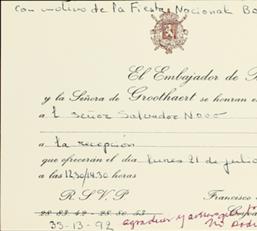 con motivo de la Fiesta Nacional
El Embajador de
y la Señora de Groothaert se honran e
a l señor Salvador Novo
a la recepción
que ofrecerán el día lunes 21 de julio
a las 12.30/14.30 horas
R.S.V.P. Francisco
33-13-92 agradecer y